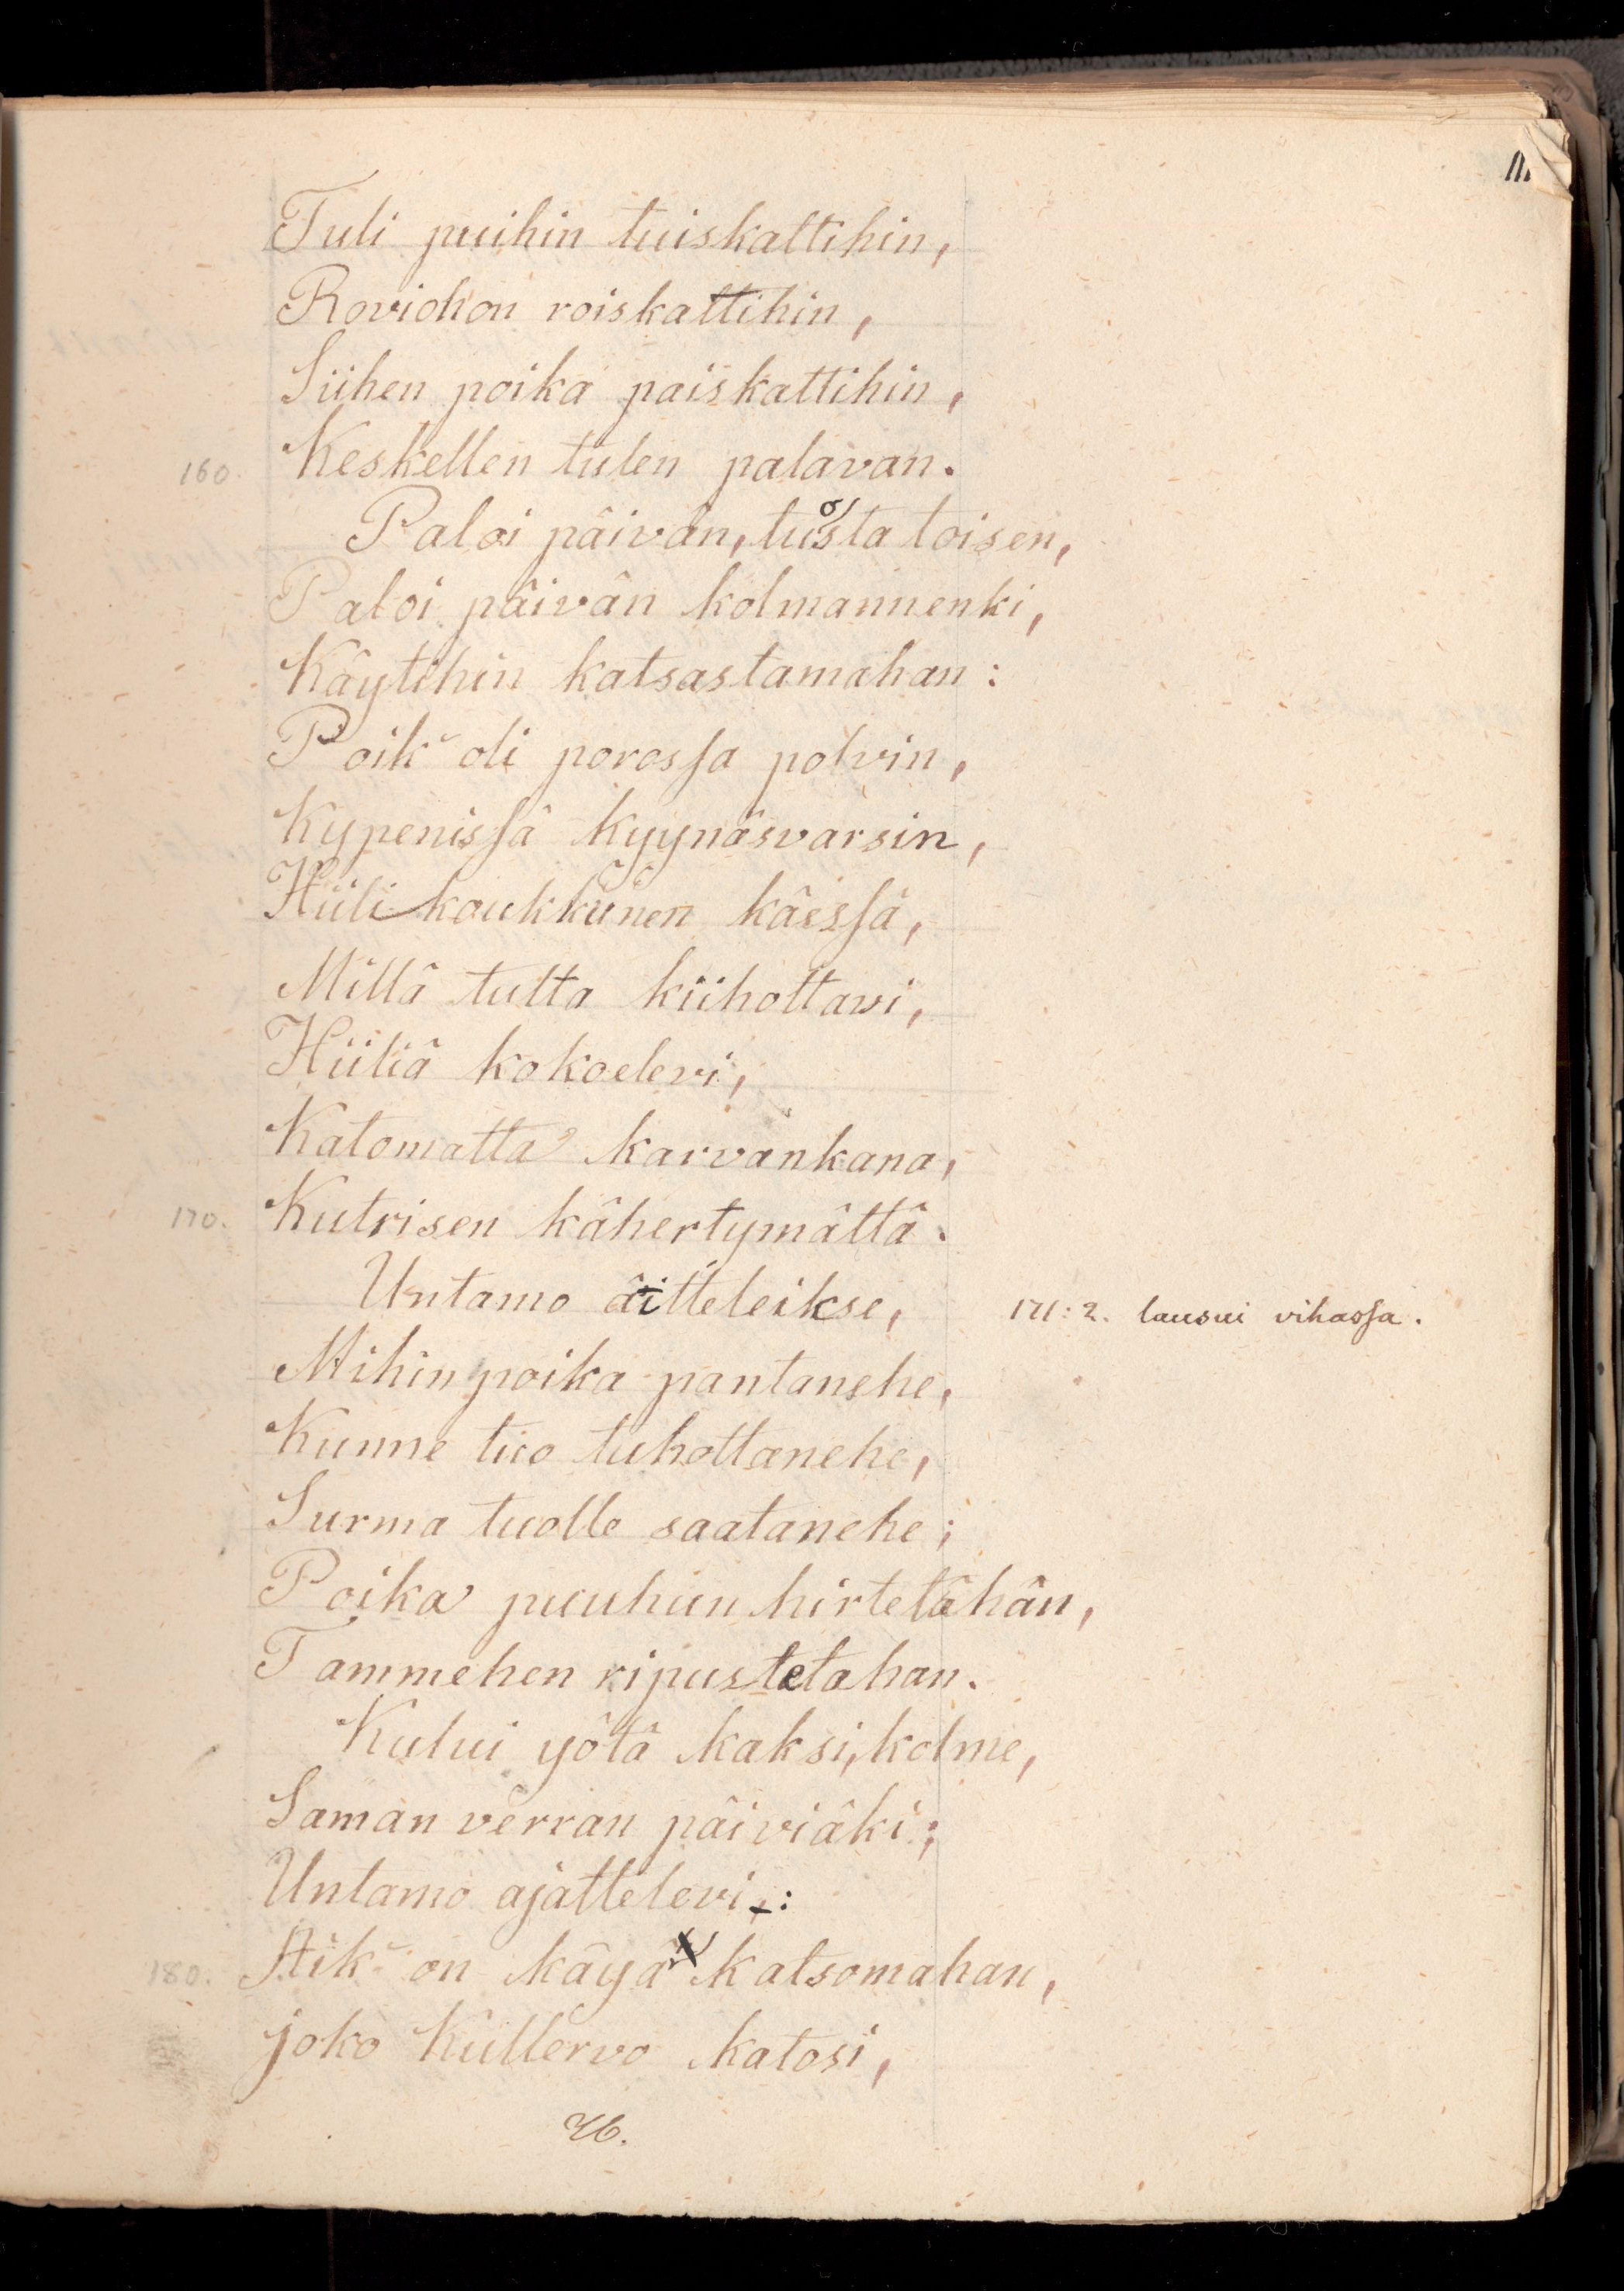 Tuli puihin tuiskattihin,
Roviohon roiskattihin,
Siihen poika paiskattihin,
160. Keskellen tulen palavan.
Paloi päivän, tuosta toisen,
Paloi päivän kolmannenki,
Käytihin katsastamahan:
Poik' oli porossa polvin,
Kypenissä kyynäsvarsin,
Hiili koukkunen käessä,
Millä tulta kiihottavi,
Hiiliä kokoelevi,
Katomatta karvankana,
170. Kutrisen kähertymättä.
Untamo äitteleikse, 171:2. lausui vihassa.
Mihin poika pantanehe,
Kunne tuo tuhottanehe,
Surma tuolle saatanehe;
Poika puuhun hirtetähän,
Tammehen ripustetahan.
Kului yötä kaksi, kolme,
Saman verran päiviäki;
Untamo ajattelevi:
180. Aik' on käyä katsomahan,
joko Kullervo katosi,
26.